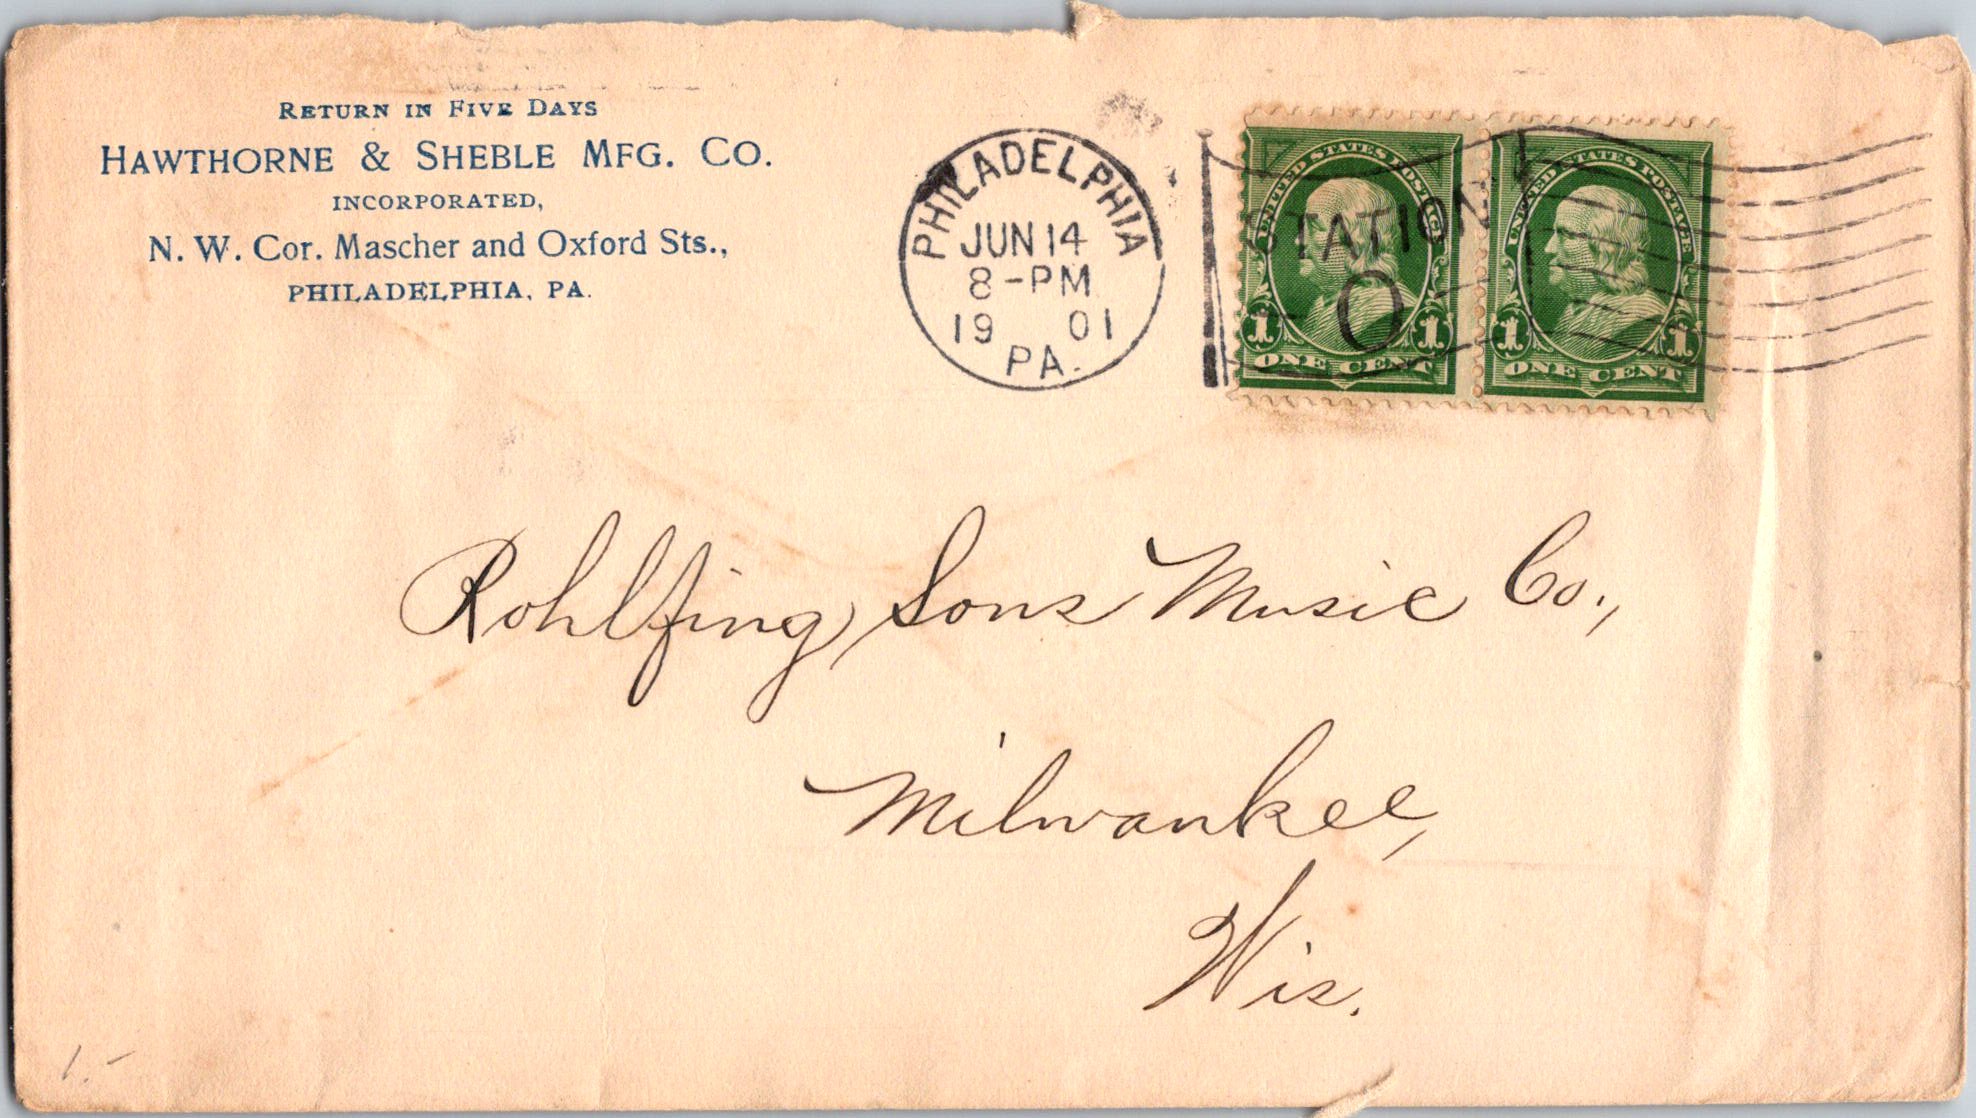 RETURN IN FIVE DAYS
HAWTHORNE & SHEBLE MFG. CO.
INCORPORATED,
N. W. Cor. Mascher and Oxford Sts.,
PHILADELPHIA, PA.
PHILADELPHIA
JUN 14
8-PM
19 01
PA.
STATION
O
UNITED STATES POSTAGE
1 1
ONE CENT
UNITED STATES POSTAGE
1 1
ONE CENT
Rohlfing Sons Music Co.,
Milwaukee,
Wis.
1.-